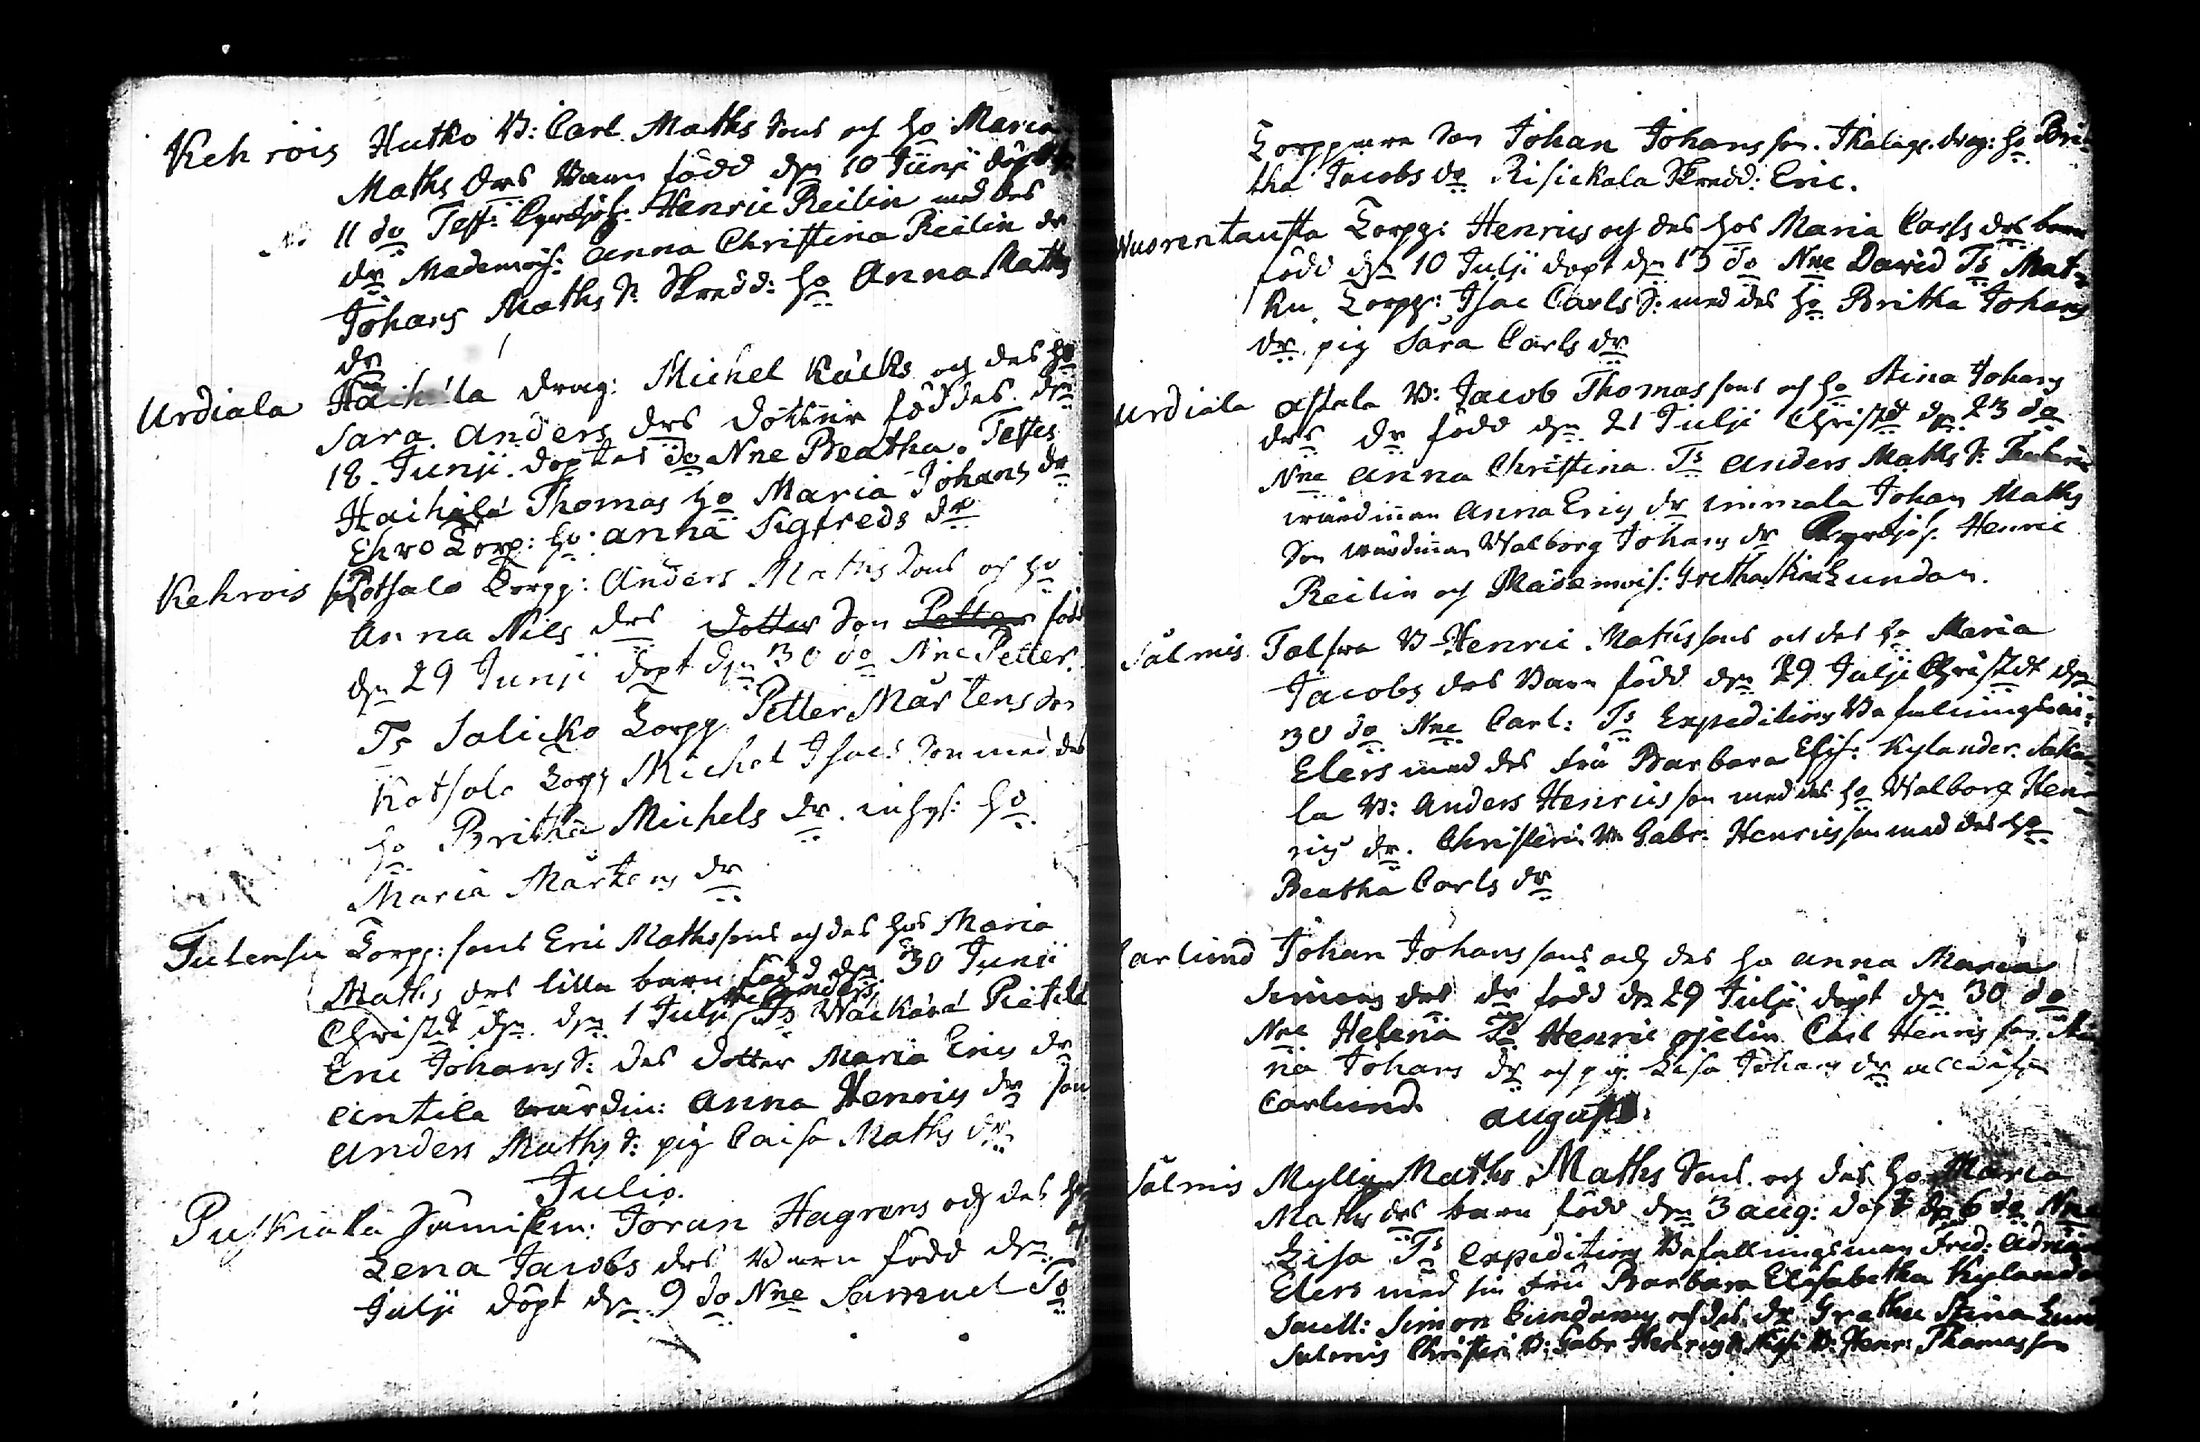 Kehrois Hutko B: Carl Maths Sons och ho Maria
Maths drs Barn född dn 10 Junij döpt
11 do Test: Cyrckjoh. Henric Reilin med des
dr Mademois: Anna Christina Reilin dr
Johans Maths S: Skredd: ho Anna Maths
dr
Urdiala drag: Michel Kacks och des ho
Sara Anders drs dotter föddes dn
18 Junij döptes do Nne Beatha. Testes
Haihala Thomas ho Maria Johans dr
Ehro Torp: ho: Anna Sigfreds dr
Kehrois Kotsalo Torpp: Anders Maths Sons och ho
Anna Nils drs dotter Son Petter född
dn 29 Junij döpt dn 30 do Nne Petter.
Ts Salicko Torpp Petter Mårtens Son
Kotsalo Torpp Michel Isacs Son med des
ho Britha Michels dr. inhys: ho
Maria Mårtens dr
Tulensu Torpp: sons Eric Mathssons och des hos Maria
Maths drs lilla barn född dn 30 Junij
Christt dn dn 1 Julij Nne Anders Ts Wäkärä Pietilä
Eric Johans S: des dotter Maria Erics dr
Eintila wärdin: Anna Henrics dr son
Anders Maths S: pig Caisa Maths dr
Julio.
Puskiala Jöran Hagrens och des ho
Lena Jacobs drs Barn född dn
Julij döpt dn 9 do Nne Samuel Ts
Torppare Son Johan Johansson. drag: ho Bri-
tha Jacobs dr Risickala Skredd: Eric.
Nuorentausta Torpp: Henrics och des hos Maria Carls drs barn
född dn 10 Julij döpt dn 13 do Nne David Ts Mat-
ku Torpp: Isac Carls S: med des ho Britha Johans
dr. pig Sara Carls dr
Urdiala B: Jacob Thomas sons och ho Stina Johans
drs dr född dn 21 Julij Christt dn 23 do
Nne Anna Christina. Ts Anders Maths S:
wärdinnan Anna Erics dr Johan Maths
Son wärdinnan Walborg Johans dr Cyrckjoh. Henric
Reilin och Mademois: Gretha Stina Lundan.
Salmis B Henric Mathssons och des ho Maria
Jacobs drs Barn född dn 29 Julij Christdt dn
30 do Nne Carl: Ts Expeditions Befallningsm:
Elers med des fru Barbara Elis: Kylander.
la B: Anders Henricsson med des ho Walborg Hen-
rics dr. Christeri B Gabr. Henricsson med des ho
Beatha Carls dr
Carlund Johan Johanssons och des ho Anna Maria
Simons drs dr född dn 29 Julij döpt dn 30 do
Nne Helena Ts Henric Carl Henricsson Sti-
na Johans dr och pig. Lisa Johans dr
Carlund.
Augusti:
Salmis Mylly Maths Maths Sons och des ho Maria
Maths drs barn född dn 3 Aug: döpt dn 6 do Nne
Lisa Ts Expeditions Befallningsman Fred: Adrian
Elers med sin fru Barbara Elisabetha Kylander
Simon Lundans och des dr Gretha Stina Lund
Salmis Christeri B: Gabr Henrics S: B: Henr: Thomasson